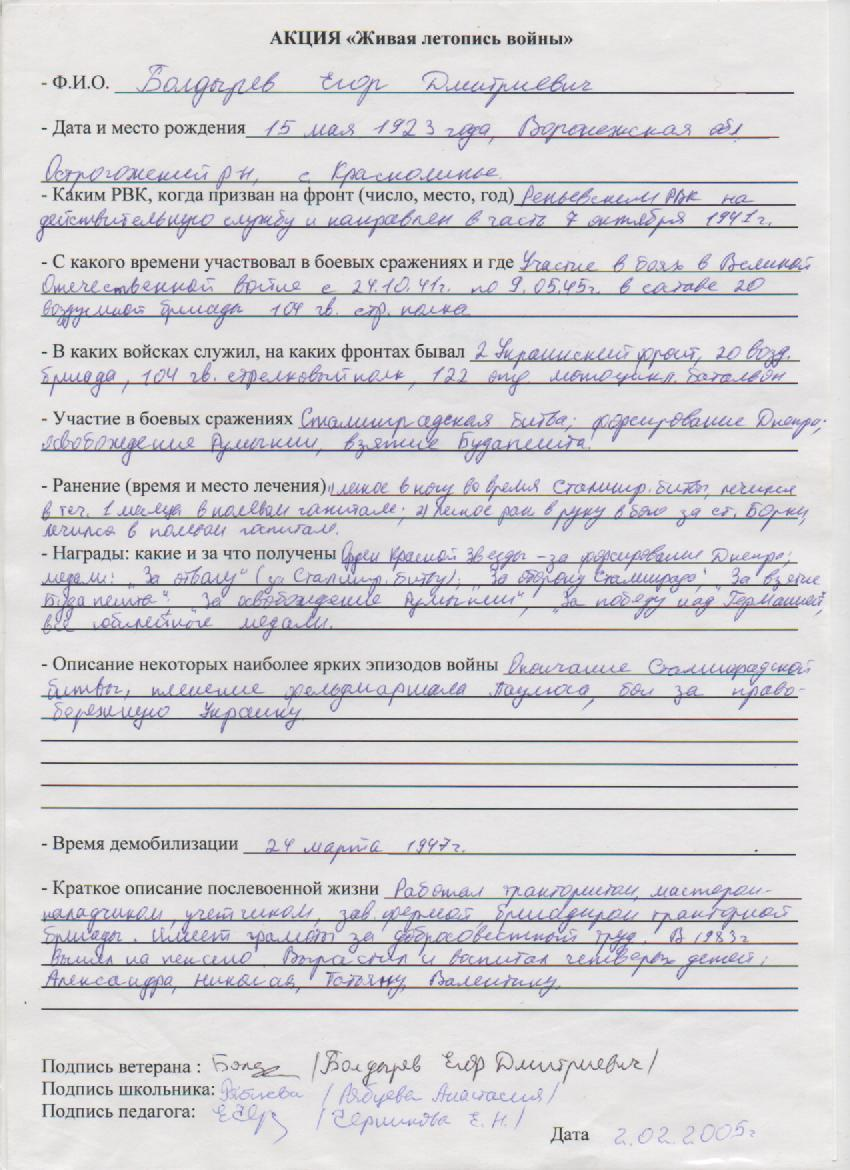 АКЦИЯ «Живая летопись войны»
- Ф.И.О. Болдырев Егор Дмитриевич
- Дата и место рождения 15 мая 1923 года, Воронежская обл
Острогожский р-н, с. Красполинье.
- Каким РВК, когда призван на фронт (число, место, год) Репьевским РВК на
действительную службу и направлен в часть 7 октября 1941 г.
- С какого времени участвовал в боевых сражениях и где Участие в боях в Великой
Отечественной войне с 24.10.41г. по 9.05.45г. в составе 20
воздушной бригады 104 гв. стр. полка
- В каких войсках служил, на каких фронтах бывал 2 Украинский фронт, 20 возд.
бригада, 104 гв. стрелковый полк, 122 отд. мотоцикл. батальон
- Участие в боевых сражениях Сталинградская битва; форсирование Днепра;
освобождение Румынии, взятие Будапешта.
- Ранение (время и место лечения) 1) легкое в ногу во время Сталингр. битвы, лечился
в теч. 1 месяца в полевом госпитале; 2) легкое ран. в руку в бою за ст. Борки,
лечился в полевом госпитале.
- Награды: какие и за что получены Орден Красной Звезды – за форсирование Днепра;
медали: "За отвагу" (за Сталингр. битву); "За оборону Сталинграда", "За взятие
Будапешта", "За освобождение Румынии", "За победу над Германией",
все юбилейные медали.
- Описание некоторых наиболее ярких эпизодов войны Окончание Сталинградской
битвы, пленение фельдмаршала Паулюса, бои за право-
бережную Украину.
- Время демобилизации 24 марта 1947г.
- Краткое описание послевоенной жизни Работал трактористом, мастером-
наладчиком, учетчиком, зав. фермой, бригадиром тракторной
бригады. Имеет грамоты за добросовестный труд. В 1983г
вышел на пенсию. Вырастил и воспитал четверых детей:
Александра, Николая, Татьяну, Валентину.
Подпись ветерана : Болд /Болдырев Егор Дмитриевич/
Подпись школьника: Рябцева /Рябцева Анастасия/
Подпись педагога: / Е. Н./
Дата 2.02.2005г